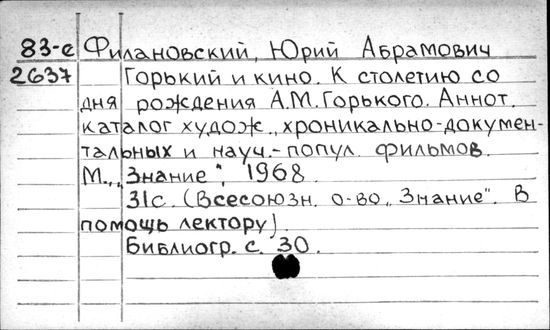 83-е Филановский, Юрий Абрамович
2637 Горький и кино. К столетию со
дня рождения А.М. Горького. Аннот.
каталог худож., хроникально-докумен-
тальных и науч.-попул. фильмов.
М., „Знание", 1968.
31с. (Всесоюзн. о-во „Знание". В
помощь лектору).
Библиогр. с. 30.